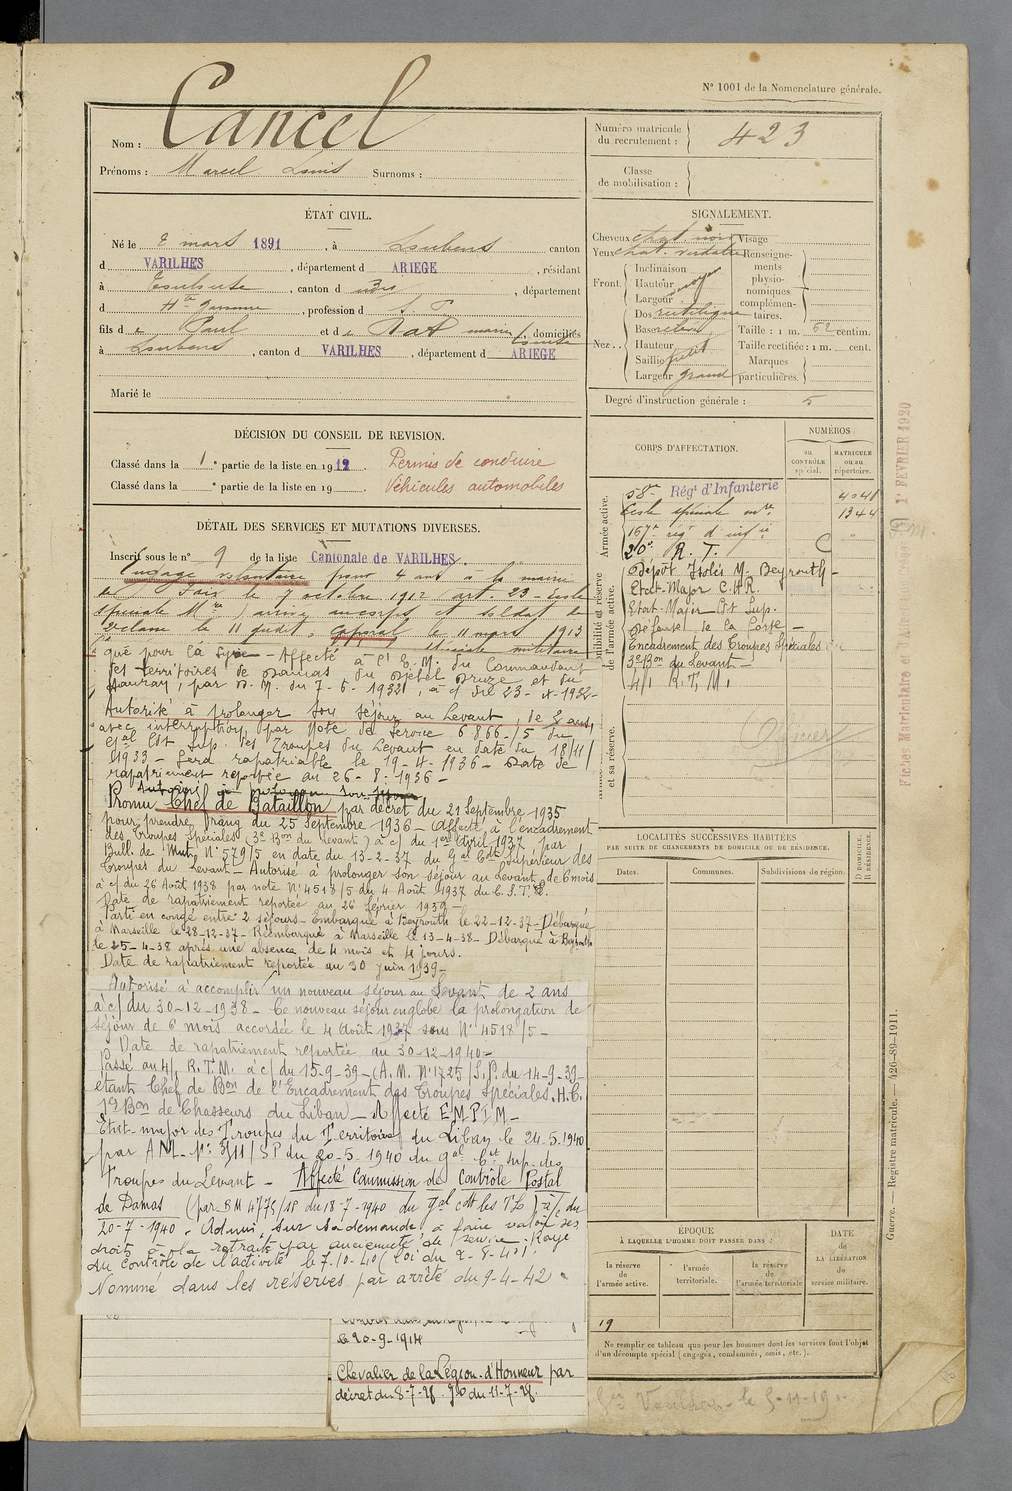 N° 1001 de la Nomenclature générale.
Nom : Cancel
Prénoms : Marcel Louis Surnoms :
Numéro matricule du recrutement : 423
Classe de mobilisation :
ÉTAT CIVIL.
Né le 2 mars 1891, à Loubens canton
d VARILHES, département d ARIEGE, résidant
à Toulouse, canton d , département
d Hte Garonne, profession d S. P.
fils d e Paul et d e , domiciliés
à Loubens, canton d VARILHES, département d ARIEGE
Marié le
SIGNALEMENT.
Cheveux chat. noir Visage
Yeux chat. verdatre Renseigne-
Inclinaison ments
Front. Hauteur moy physio-
Largeur nomiques
complémen-
Dos rectiligne taires.
Base relevé Taille : 1 m. 62 centim.
Nez .. Hauteur Taille rectifiée : 1 m. cent.
Saillie petit Marques
Largeur grand particulières.
Degré d'instruction générale : 5
DÉCISION DU CONSEIL DE REVISION.
Classé dans la 1e partie de la liste en 1912. Permis de conduire
Classé dans la e partie de la liste en 19 . Véhicules automobiles
DÉTAIL DES SERVICES ET MUTATIONS DIVERSES.
Inscrit sous le n° 9 de la liste Cantonale de VARILHES.
Engagé volontaire pour 4 ans à la mairie
de Foix le 7 octobre 1912 art. 23 - Liste
spéciale Mre arrivé au corps et soldat de
2e classe le 11 dudit, caporal le 11 mars 1913
militaire
qué pour la Syrie - Affecté à l'E. M. du Commandant
des territoires de Damas du Djebel Druze et du
Hauran, par D. M. du 7-6-1932, à c/ du 23-
Autorisé à prolonger son séjour au Levant, de 2 ans,
avec interruption, par Note de Service 6866-/5 du
Gral Cdt Sup. des Troupes du Levant en date du 18/11/
1933 - Sera rapatriable le 19-4-1936 - Date de
rapatriement reportée au 26-8-1936 -
Promu Chef de Bataillon par décret du 21 Septembre 1935
pour prendre rang du 25 Septembre 1936 - Affecté à l'encadrement
des Troupes Spéciales (3e Bon du Levant) à c/ du 1er Avril 1937 par
Bull. de Mut. N° 579/5 en date du 13-2-37 du Gal Cdt Supérieur des
Troupes du Levant - Autorisé à prolonger son séjour au Levant de 6 mois
à c/ du 26 Août 1938 par note N° 4518/5 du 4 Août 1937 du C.S.T.L.
Date de rapatriement reportée au 26 Février 1939 -
Parti en congé entre 2 séjours - Embarqué à Beyrouth le 22-12-37 - Débarqué
à Marseille le 28-12-37 - Réembarqué à Marseille le 13-4-38 - Débarqué à Beyrouth
le 25-4-38 après une absence de 4 mois et 4 jours.
Date de rapatriement reportée au 30 juin 1939 -
Autorisé à accomplir un nouveau séjour au Levant de 2 ans
à c/ du 30-12-1938 - Ce nouveau séjour englobe la prolongation de
séjour de 6 mois accordée le 4 Août 1937 sous N° 4518/5 -
Date de rapatriement reportée au 30-12-1940 -
Passé au 4/1 R.T.M. à c/ du 15-9-39 - (A.M. N° 1725/S.P. du 14-9-39 -
étant Chef de Bon de l'Encadrement des Troupes Spéciales. H.C.
1er Bon de Chasseurs du Liban - Affecté E.M.P.I.M -
État-major des Troupes du Territoire du Liban le 24.5.1940
par AM - N°: 3/11/SP du 20-5-1940 du gal Ct sup. des
Troupes du Levant - Affecté Commission de Contrôle Postal
de Damas (par BM 4775/1P du 18-7-1940 du gal cdt les TL) à/c du
20-7-1940. Admis, sur sa demande à faire valoir ses
droits à la retraite par ancienneté de service. Rayé
du contrôle de l'activité le 7.10.40 (loi du 2-8-40).
Nommé dans les réserves par arrêté du 9-4-42.
le 20-9-1914
Chevalier de la Légion d'Honneur par
décret du 8-7-28. J.O. du 11-7-28.
CORPS D'AFFECTATION.
NUMÉROS
au CONTRÔLE spécial.
MATRICULE ou au répertoire.
Armée active.
58e Régt d'Infanterie 4041
Liste spéciale mre 1344
167e rég d'infie "
20e R. T.
Dépôt Isolés M. Beyrouth -
Etat-Major C.H.R.
Etat-Major Cdt Sup.
Défense de la Corse -
Encadrement des Troupes Spéciales
3e Bon du Levant -
4/1 R.T.M.
Disponibilité et réserve de l'armée active.
et sa réserve.
Officier
LOCALITÉS SUCCESSIVES HABITÉES
PAR SUITE DE CHANGEMENTS DE DOMICILE OU DE RÉSIDENCE.
Dates. Communes. Subdivisions de région. D DOMICILE. R RÉSIDENCE.
ÉPOQUE
À LAQUELLE L'HOMME DOIT PASSER DANS :
la réserve de l'armée active.
l'armée territoriale.
la réserve de l'armée territoriale
DATE de LA LIBÉRATION du service militaire.
19
Ne remplir ce tableau que pour les hommes dont les services font l'objet
d'un décompte spécial (engagés, condamnés, omis, etc.).
Guerre. — Registre matricule. — 426-89-1911.
1er FEVRIER 1920